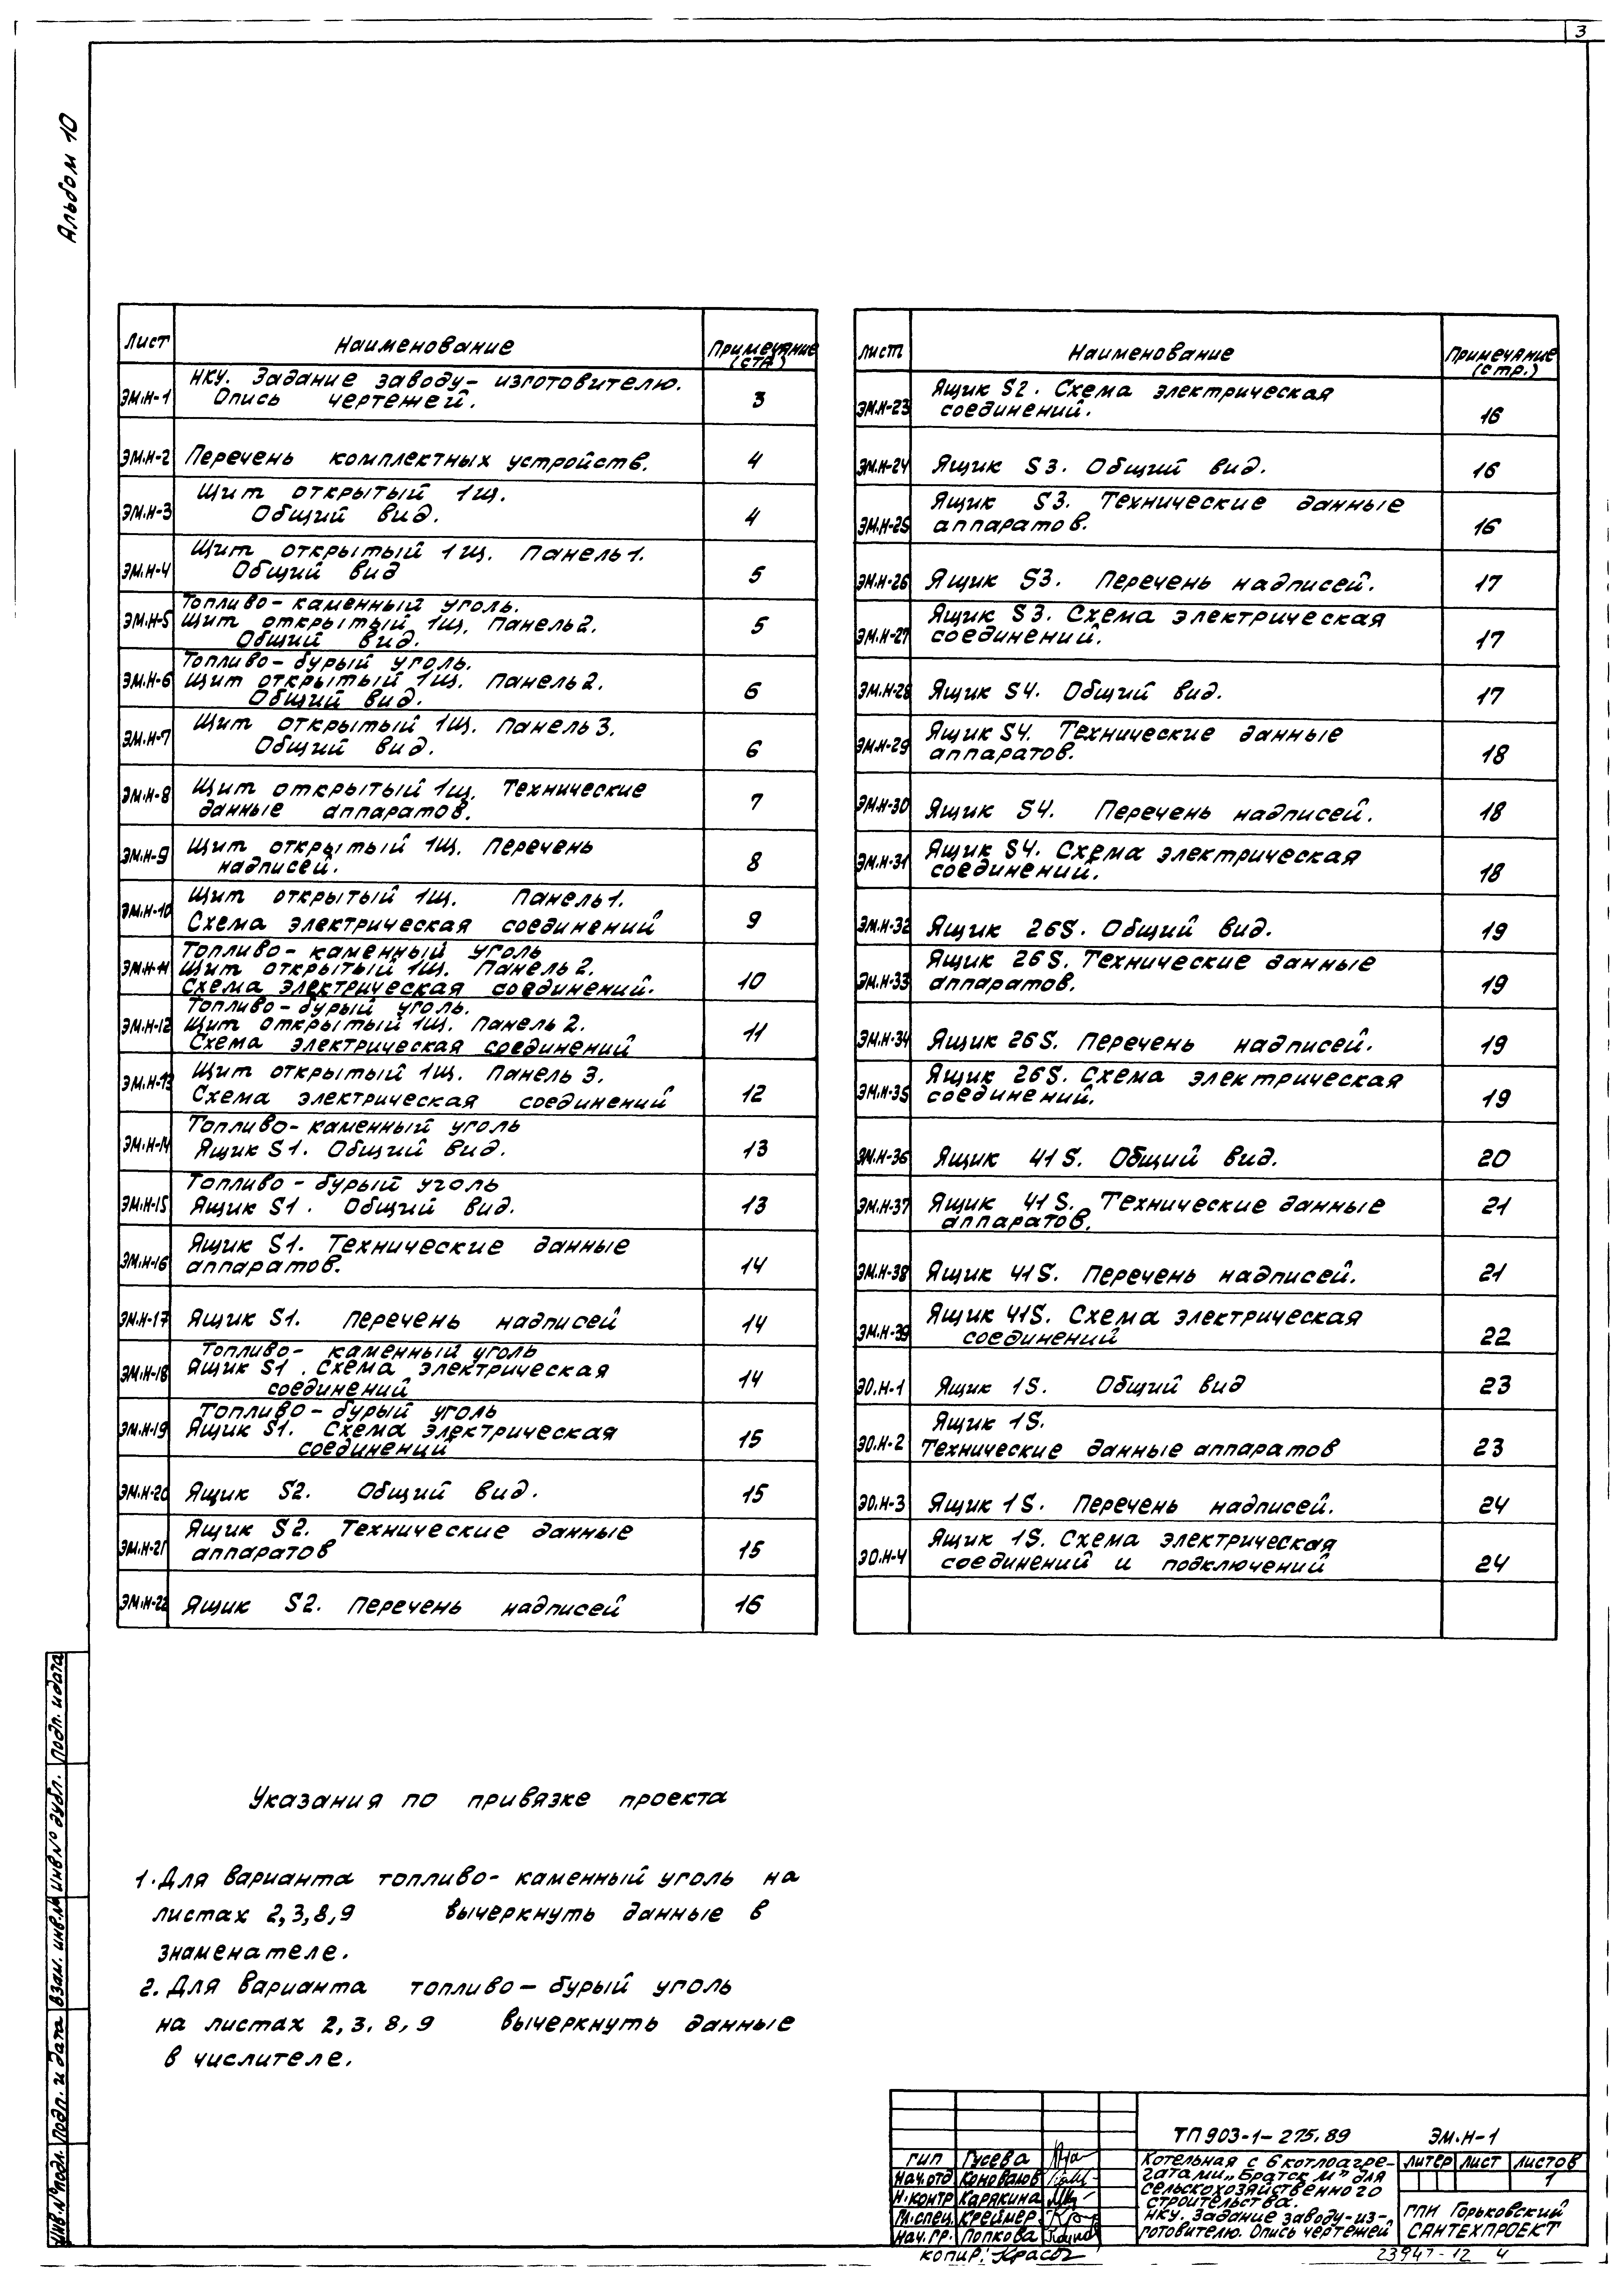 3
Альбом 10
Лист Наименование Примечание (стр)
ЭМ.Н-1 НКУ. Задание заводу-изготовителю.
Опись чертежей. 3
ЭМ.Н-2 Перечень комплектных устройств. 4
ЭМ.Н-3 Щит открытый 1Щ.
Общий вид. 4
ЭМ.Н-4 Щит открытый 1Щ. Панель 1.
Общий вид 5
Топливо-каменный уголь.
ЭМ.Н-5 Щит открытый 1Щ. Панель 2.
Общий вид. 5
Топливо-бурый уголь.
ЭМ.Н-6 Щит открытый 1Щ. Панель 2.
Общий вид. 6
ЭМ.Н-7 Щит открытый 1Щ. Панель 3.
Общий вид. 6
ЭМ.Н-8 Щит открытый 1Щ. Технические
данные аппаратов. 7
ЭМ.Н-9 Щит открытый 1Щ. Перечень
надписей. 8
ЭМ.Н-10 Щит открытый 1Щ. Панель 1.
Схема электрическая соединений 9
Топливо-каменный уголь
ЭМ.Н-11 Щит открытый 1Щ. Панель 2.
Схема электрическая соединений. 10
Топливо-бурый уголь.
ЭМ.Н-12 Щит открытый 1Щ. Панель 2.
Схема электрическая соединений 11
ЭМ.Н-13 Щит открытый 1Щ. Панель 3.
Схема электрическая соединений 12
Топливо-каменный уголь
ЭМ.Н-14 Ящик S1. Общий вид. 13
Топливо-бурый уголь
ЭМ.Н-15 Ящик S1. Общий вид. 13
ЭМ.Н-16 Ящик S1. Технические данные
аппаратов. 14
ЭМ.Н-17 Ящик S1. Перечень надписей 14
Топливо- каменный уголь
ЭМ.Н-18 Ящик S1. Схема электрическая
соединений 14
Топливо-бурый уголь
ЭМ.Н-19 Ящик S1. Схема электрическая
соединений 15
ЭМ.Н-20 Ящик S2. Общий вид. 15
ЭМ.Н-21 Ящик S2. Технические данные
аппаратов 15
ЭМ.Н-22 Ящик S2. Перечень надписей 16
Лист Наименование Примечание (стр.)
ЭМ.Н-23 Ящик S2. Схема электрическая
соединений. 16
ЭМ.Н-24 Ящик S3. Общий вид. 16
ЭМ.Н-25 Ящик S3. Технические данные
аппаратов. 16
ЭМ.Н-26 Ящик S3. Перечень надписей. 17
ЭМ.Н-27 Ящик S3. Схема электрическая
соединений. 17
ЭМ.Н-28 Ящик S4. Общий вид. 17
ЭМ.Н-29 Ящик S4. Технические данные
аппаратов. 18
ЭМ.Н-30 Ящик S4. Перечень надписей. 18
ЭМ.Н-31 Ящик S4. Схема электрическая
соединений. 18
ЭМ.Н-32 Ящик 26S. Общий вид. 19
ЭМ.Н-33 Ящик 26S. Технические данные
аппаратов. 19
ЭМ.Н-34 Ящик 26S. Перечень надписей. 19
ЭМ.Н-35 Ящик 26S. Схема электрическая
соединений. 19
ЭМ.Н-36 Ящик 41S. Общий вид. 20
ЭМ.Н-37 Ящик 41S. Технические данные
аппаратов. 21
ЭМ.Н-38 Ящик 41S. Перечень надписей. 21
ЭМ.Н-39 Ящик 41S. Схема электрическая
соединений 22
ЭО.Н-1 Ящик 1S. Общий вид 23
ЭО.Н-2 Ящик 1S.
Технические данные аппаратов 23
ЭО.Н-3 Ящик 1S. Перечень надписей. 24
ЭО.Н-4 Ящик 1S. Схема электрическая
соединений и подключений 24
Указания по привязке проекта
1. Для варианта топливо-каменный уголь на
листах 2,3,8,9 вычеркнуть данные в
знаменателе.
2. Для варианта топливо-бурый уголь
на листах 2,3,8,9 вычеркнуть данные
в числителе.
Инв.№ подл. Подп. и дата Взам. инв.№ Инв№ дубл. Подп. и дата
ТП 903-1-275.89 ЭМ.Н-1
ГИП Гусева
Нач.отд Коновалов
Н.контр Карякина
Гл.спец. Креймер
Нач.гр. Попкова
Котельная с 6 котлоагре-
гатами „Братск М" для
сельскохозяйственного
строительства.
НКУ. Задание заводу-из-
готовителю. Опись чертежей
Литер Лист Листов
1
ГПИ Горьковский
САНТЕХПРОЕКТ
копир:
23947-12 4